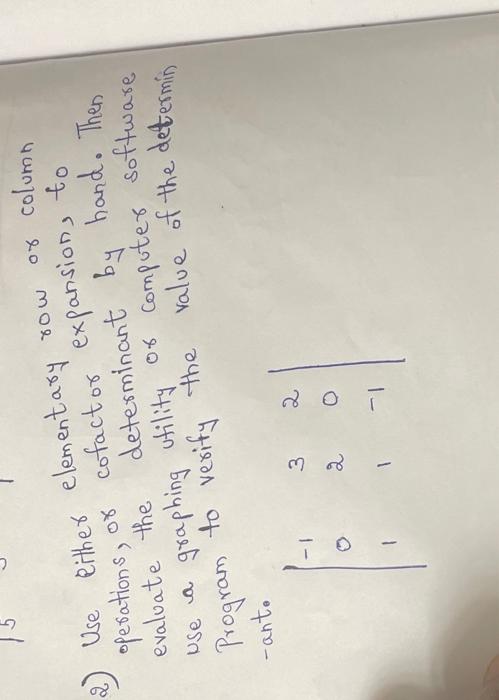 2) Use either elementary row or column
operations, or cofactor expansion, to
evaluate the determinant by hand. Then
use a graphing utility or computer software
Program to verify the value of the determin
-ant.
-1 3 2
0 2 0
1 1 -1